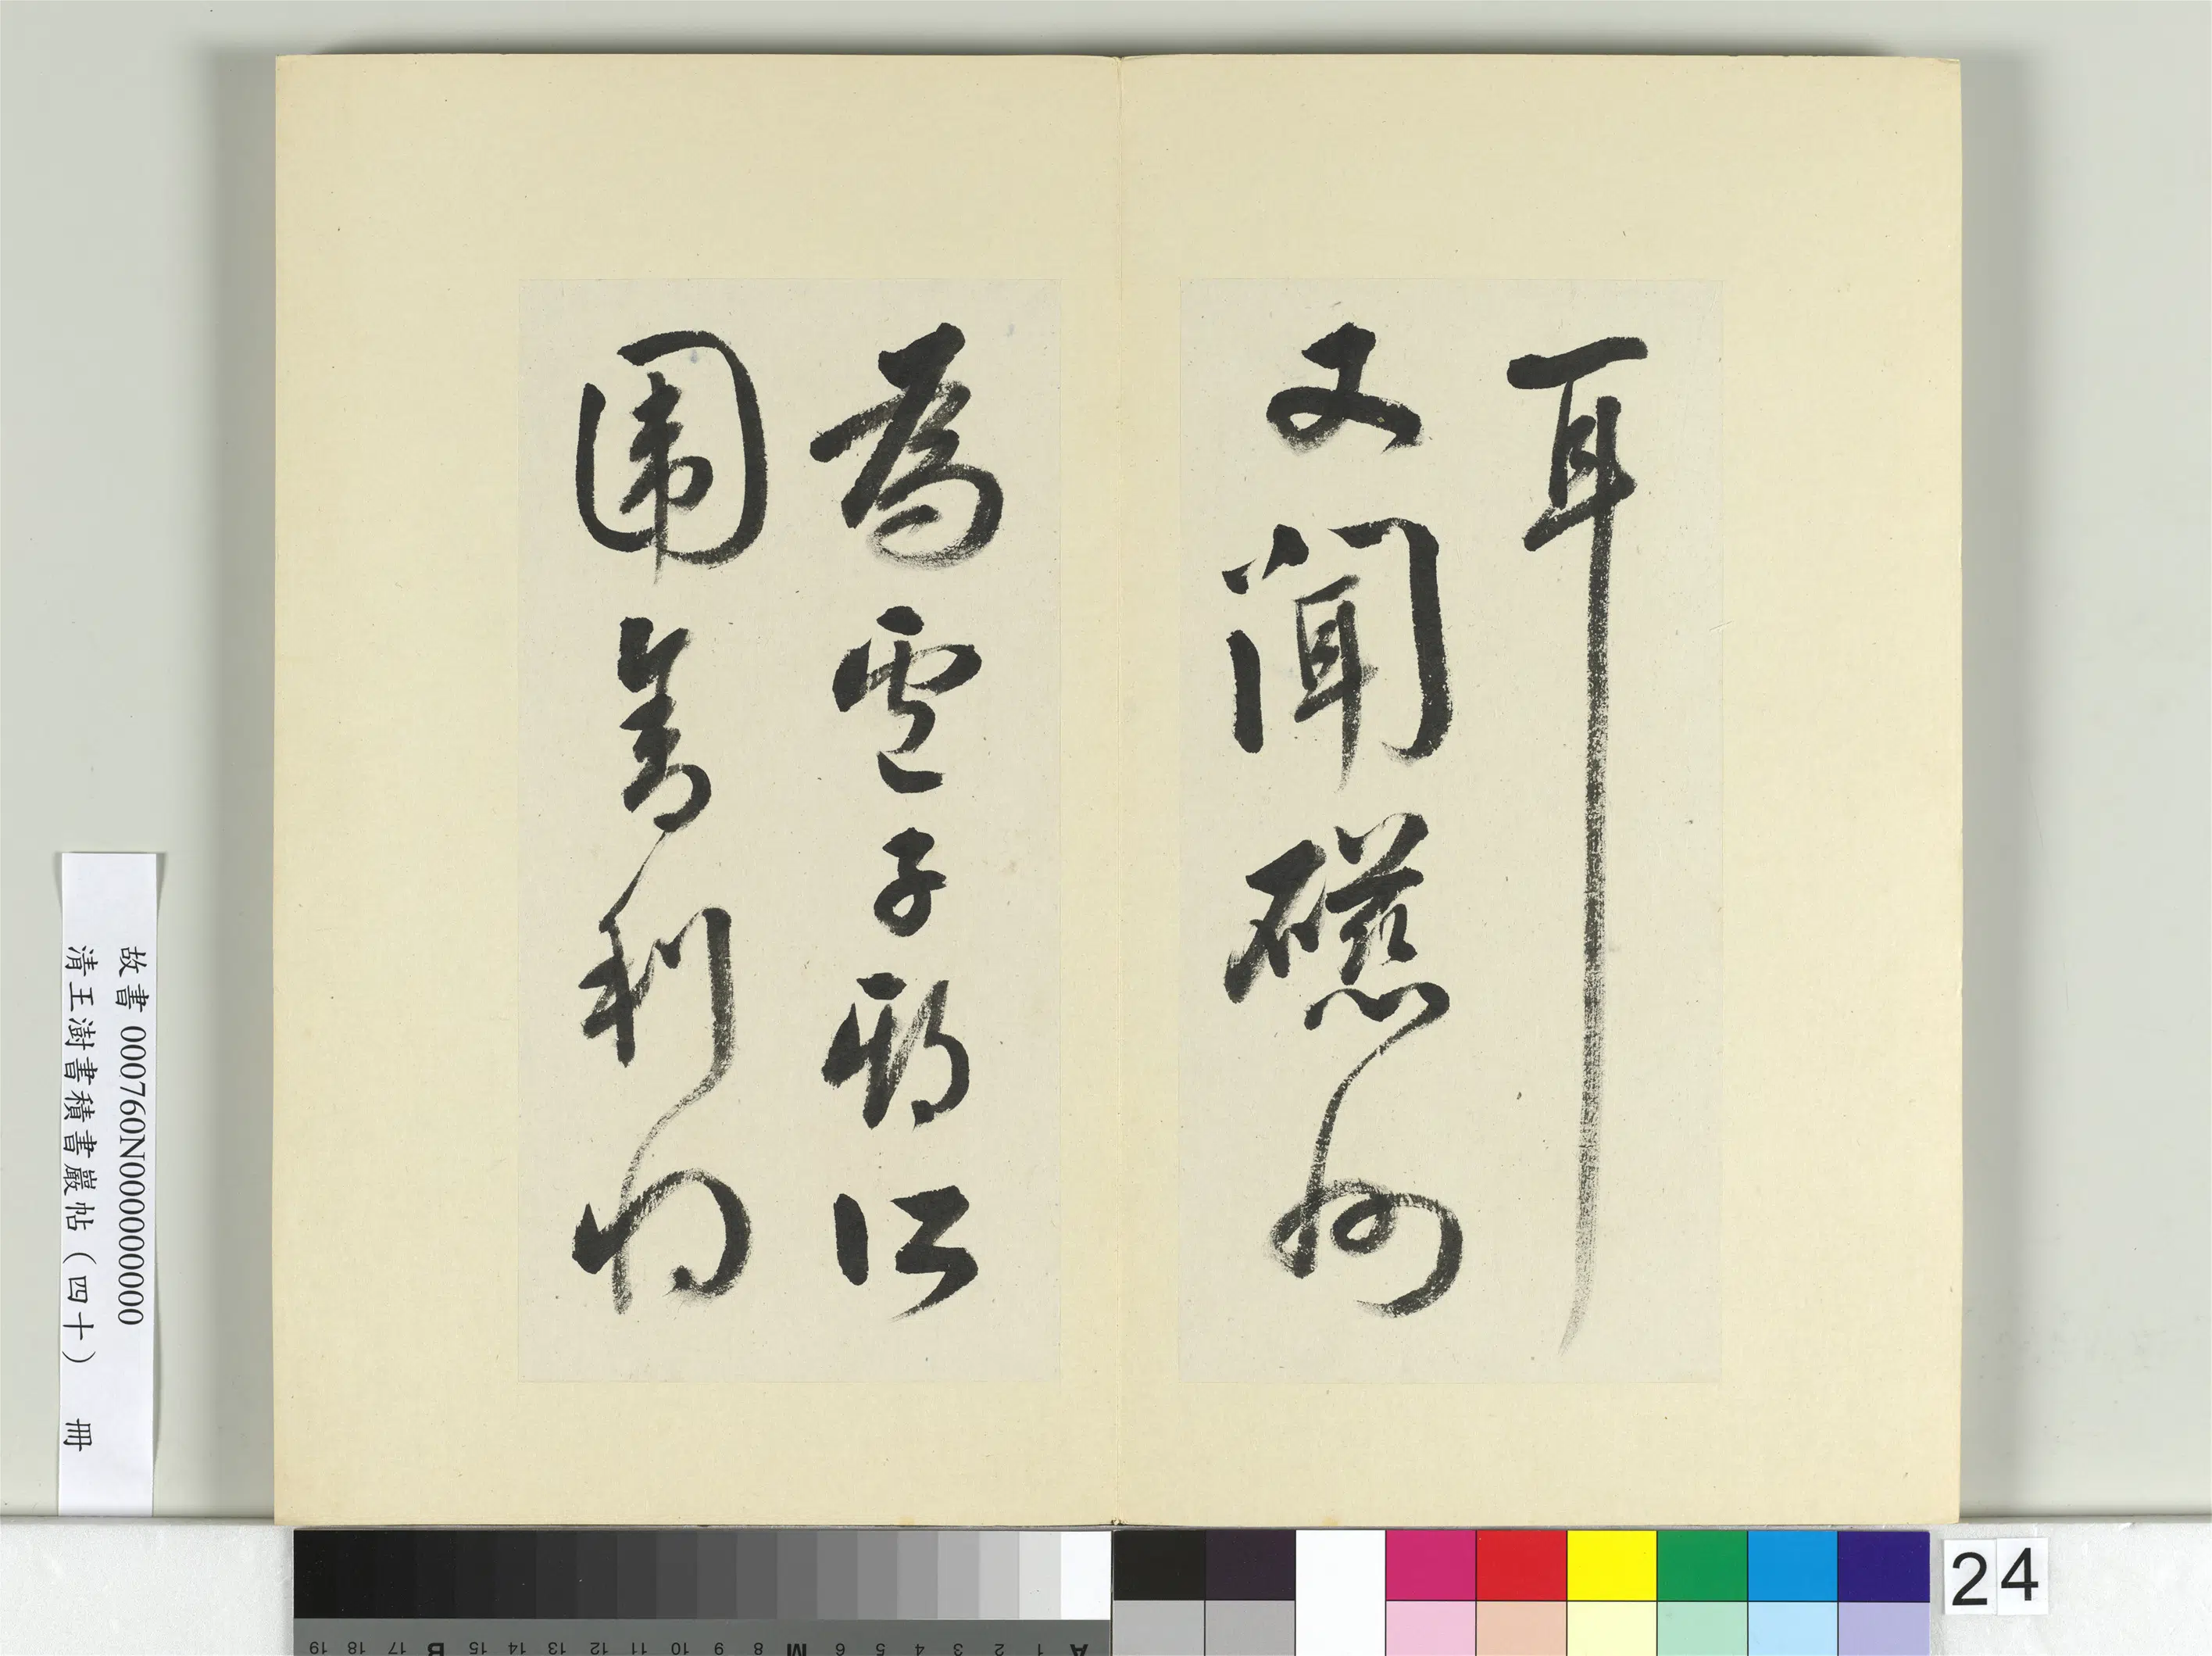 耳
又聞磁州
為盧子期所
圍舍利將
故書 000760N000000000
清王澍書積書巖帖(四十) 冊
24
A 1 2 3 4 5 6 M 8 9 10 11 12 13 14 15 B 17 18 19